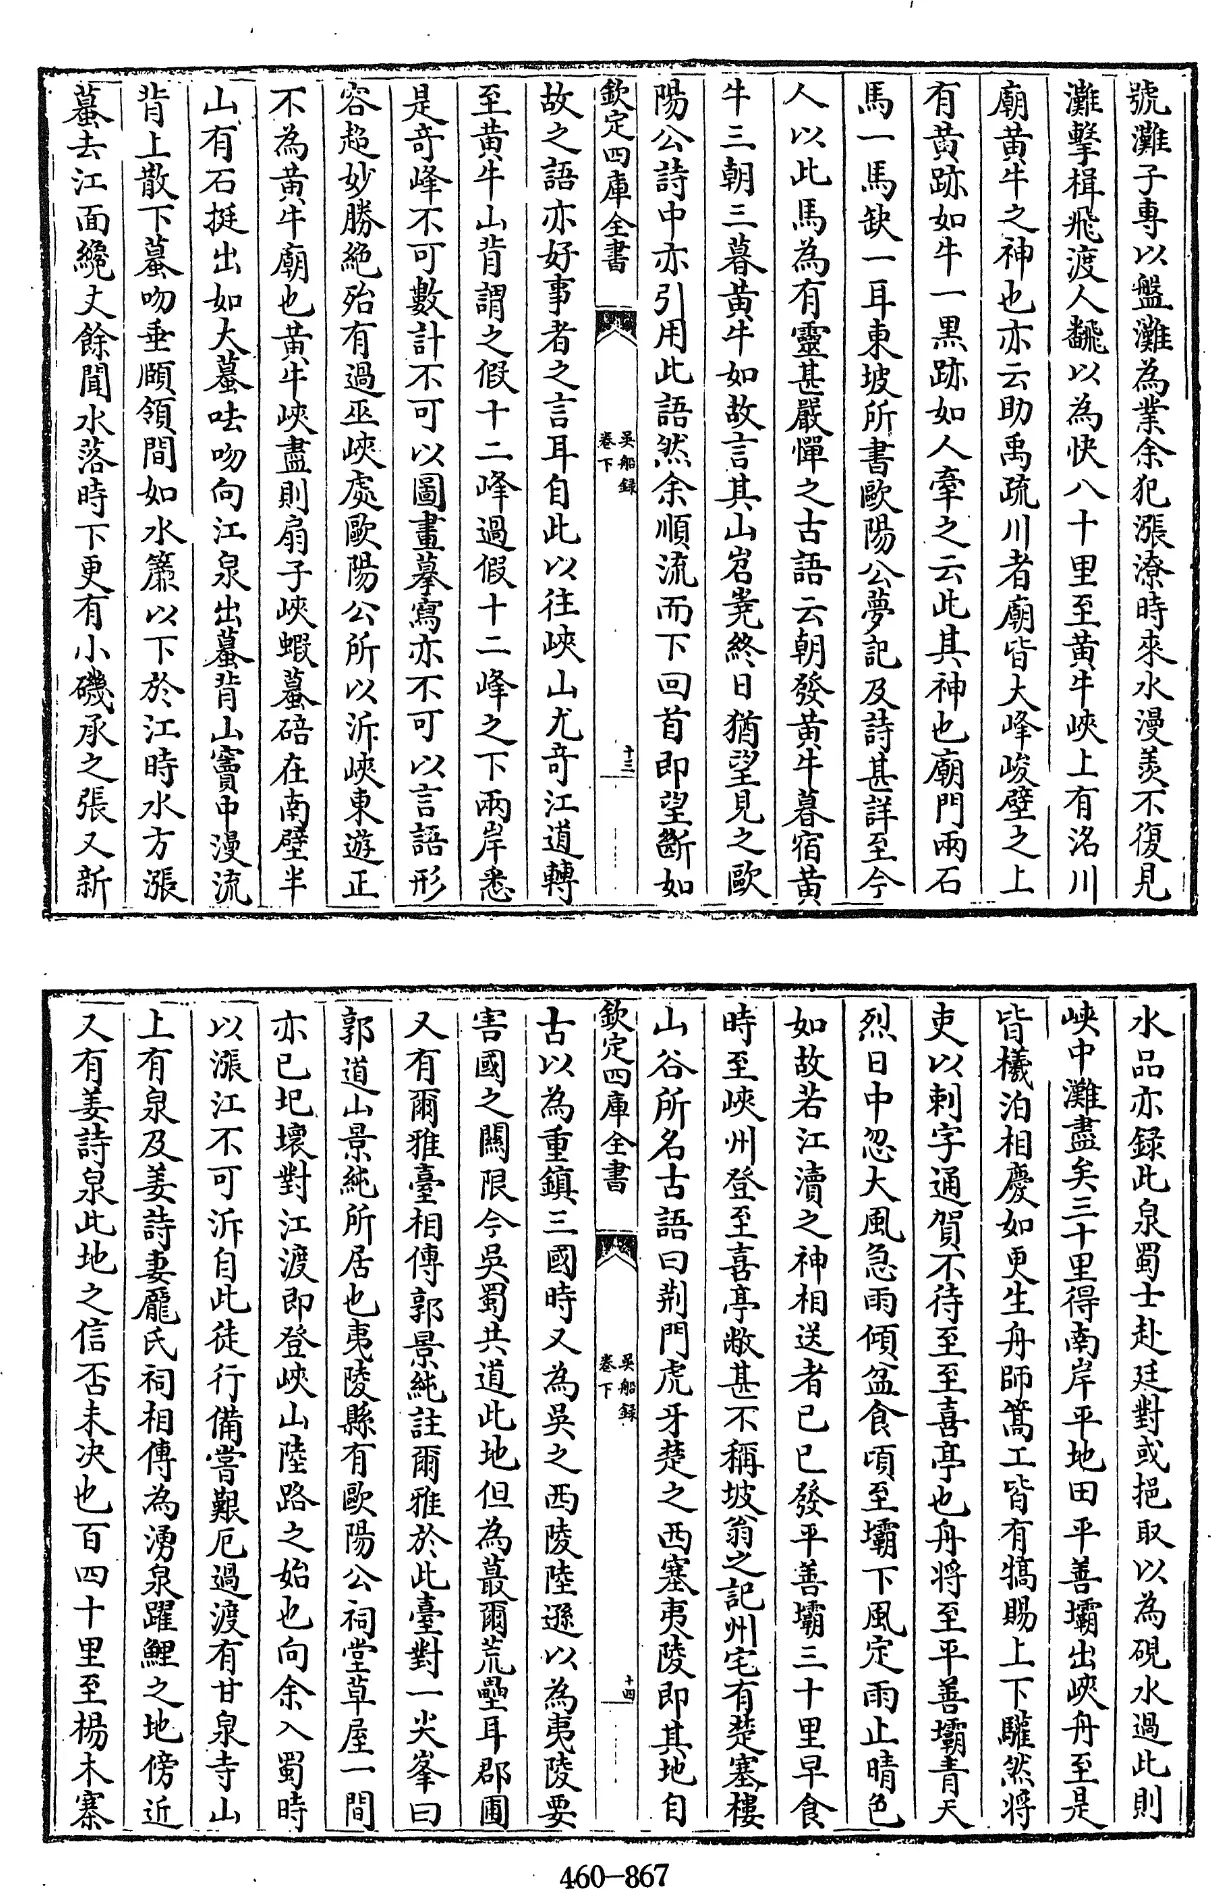 號灘子專以盤灘為業余犯漲潦時來水漫羡不復見
灘擊楫飛渡人翻以為快八十里至黄牛峽上有洺川
廟黄牛之神也亦云助禹疏川者廟皆大峰峻壁之上
有黄跡如牛一黒跡如人牽之云此其神也廟門兩石
馬一馬缺一耳東坡所書歐陽公夢記及詩甚詳至今
人以此馬為有靈甚嚴憚之古語云朝發黄牛暮宿黄
牛三朝三暮黄牛如故言其山岧嶤終日猶望見之歐
陽公詩中亦引用此語然余順流而下回首即望斷如
欽定四庫全書
吳船録
卷下
十三
故之語亦好事者之言耳自此以往峽山尤竒江道轉
至黄牛山背謂之假十二峰過假十二峰之下兩岸悉
是竒峰不可數計不可以圖畫摹寫亦不可以言語形
容超妙勝絶殆有過巫峽處歐陽公所以泝峽東遊正
不為黄牛廟也黄牛峽盡則扇子峽蝦蟇碚在南壁半
山有石挺出如大蟇呿吻向江泉出蟇背山竇中漫流
背上散下蟇吻垂頤頷間如水簾以下於江時水方漲
蟇去江面纔丈餘聞水落時下更有小磯承之張又新
水品亦録此泉蜀士赴廷對或挹取以為硯水過此則
峽中灘盡矣三十里得南岸平地田平善壩出峽舟至是
皆檥泊相慶如更生舟師篙工皆有犒賜上下驩然將
吏以刺字通賀不待至至喜亭也舟將至平善壩青天
烈日中忽大風急雨傾盆食頃至壩下風定雨止晴色
如故若江瀆之神相送者己巳發平善壩三十里早食
時至峽州登至喜亭敝甚不稱坡翁之記州宅有楚塞樓
山谷所名古語曰荆門虎牙楚之西塞夷陵即其地自
欽定四庫全書
吳船録
卷下
十四
古以為重鎮三國時又為吳之西陵陸遜以為夷陵要
害國之關限今吳蜀共道此地但為蕞爾荒壘耳郡圃
又有爾雅臺相傳郭景純註爾雅於此臺對一尖峯曰
郭道山景純所居也夷陵縣有歐陽公祠堂草屋一間
亦已圮壞對江渡即登峽山陸路之始也向余入蜀時
以漲江不可泝自此徒行備嘗艱厄過渡有甘泉寺山
上有泉及姜詩妻龎氏祠相傳為湧泉躍鯉之地傍近
又有姜詩泉此地之信否未决也百四十里至楊木寨
460-867